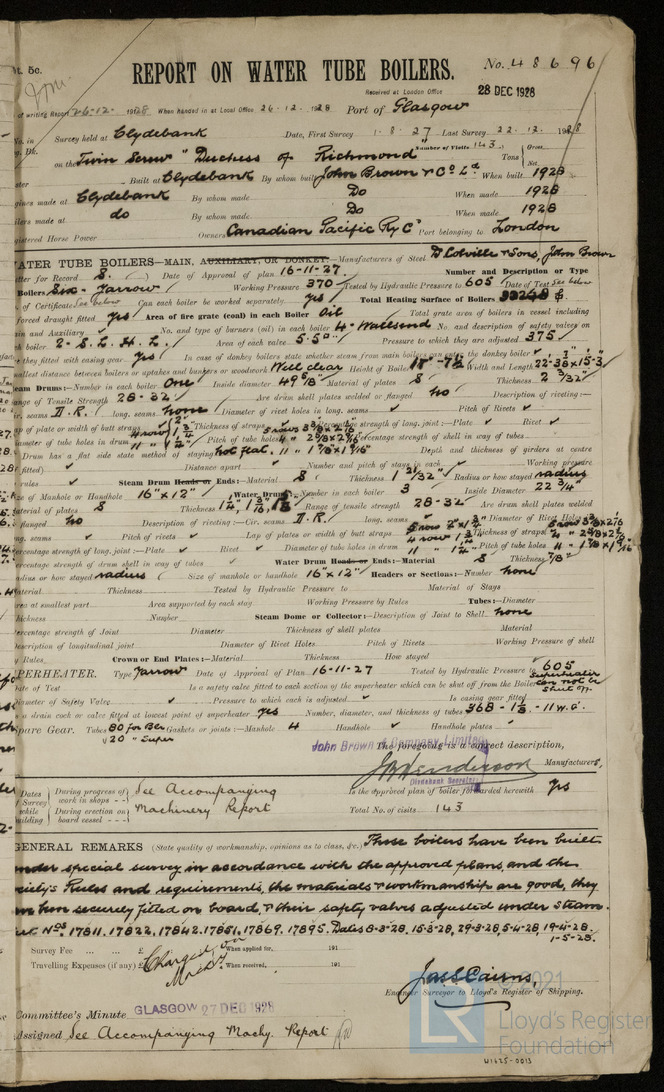 pt. 5c.
REPORT ON WATER TUBE BOILERS.
No. 48696
Received at London Office
28 DEC 1928
of writing Report 26-12. 1928 When handed in at Local Office 26.12.1928 Port of Glasgow
No. in Survey held at Clydebank Date, First Survey 1-8-27 Last Survey 22.12.1928
Number of Visits 143
on the Twin Screw "Duchess of Richmond" Tons Gross Net
Built at Clydebank By whom built John Brown & Co Ld When built 1928
made at Clydebank By whom made Do When made 1928
made at do By whom made Do When made 1928
Horse Power Owners Canadian Pacific Ry Co Port belonging to London
WATER TUBE BOILERS—MAIN, AUXILIARY, OR DONKEY.—Manufacturers of Steel D Colville & Sons, John Brown
Letter for Record S. Date of Approval of plan 16-11-27. Number and Description or Type
Boilers Six - Yarrow Working Pressure 370 Tested by Hydraulic Pressure to 605 Date of Test See below
of Certificate See below Can each boiler be worked separately yes Total Heating Surface of Boilers
forced draught fitted yes Area of fire grate (coal) in each Boiler Oil Total grate area of boilers in vessel including
Main and Auxiliary ✓ No. and type of burners (oil) in each boiler 4 - Wallsend No. and description of safety valves on
each boiler 2-S.L.H.L. Area of each valve 5.50 Pressure to which they are adjusted 375
are they fitted with easing gear yes In case of donkey boilers state whether steam from main boilers can enter the donkey boiler ✓
Smallest distance between boilers or uptakes and bunkers or woodwork Well clear Height of Boiler Width and Length
Steam Drums:—Number in each boiler One Inside diameter 49 5/8" Material of plates S Thickness 2 3/32"
Range of Tensile Strength 28-32. Are drum shell plates welded or flanged no Description of riveting:—
Cir. seams D.R. long. seams none Diameter of rivet holes in long. seams ✓ Pitch of Rivets ✓
Lap of plate or width of butt straps Thickness of straps Percentage strength of long. joint:—Plate ✓ Rivet ✓
Diameter of tube holes in drum Pitch of tube holes Percentage strength of shell in way of tubes
Drum has a flat side state method of staying not flat. Depth and thickness of girders at centre
(if fitted) ✓ Distance apart ✓ Number and pitch of stays in each ✓ Working pressure
by rules ✓ Steam Drum Heads or Ends:—Material S Thickness 1 21/32" Radius or how stayed radius
Size of Manhole or Handhole 16"×12" Water Drums:—Number in each boiler 3 Inside Diameter 22 3/4"
Material of plates S Thickness Range of tensile strength 28-32 Are drum shell plates welded
or flanged no Description of riveting:—Cir. seams D.R. long. seams ✓ Diameter of Rivet Holes
long. seams ✓ Pitch of rivets ✓ Lap of plates or width of butt straps ✓ Thickness of straps
Percentage strength of long joint:—Plate ✓ Rivet ✓ Diameter of tube holes in drum Pitch of tube holes
Percentage strength of drum shell in way of tubes ✓ Water Drum Heads or Ends:—Material S Thickness 7/8"
Radius or how stayed radius Size of manhole or handhole 16×12" Headers or Sections:—Number none
Material Thickness Tested by Hydraulic Pressure to Material of Stays
Area at smallest part Area supported by each stay Working Pressure by Rules Tubes:—Diameter
Thickness Number Steam Dome or Collector:—Description of Joint to Shell none
Percentage strength of Joint Diameter Thickness of shell plates Material
Description of longitudinal joint Diameter of Rivet Holes Pitch of Rivets Working Pressure of shell
by Rules Crown or End Plates:—Material Thickness How stayed
SUPERHEATER. Type Yarrow Date of Approval of Plan 16-11-27 Tested by Hydraulic Pressure to 605
Date of Test Is a safety valve fitted to each section of the superheater which can be shut off from the Boiler Superheater can not be shut off.
Diameter of Safety Valve Pressure to which each is adjusted ✓ Is easing gear fitted ✓
Is a drain cock or valve fitted at lowest point of superheater yes Number, diameter, and thickness of tubes 368 - 1 1/8 - 11 w.g.
Spare Gear. Tubes 80 for Blr Gaskets or joints:—Manhole 4 Handhole ✓ Handhole plates ✓
20 " Super
John Brown & Company, Limited
The foregoing is a correct description,
Manufacturers.
Clydebank Secretary
Dates of Survey while building During progress of work in shops - - During erection on board vessel - - - See Accompanying Machinery Report
Is the approved plan of boiler forwarded herewith yes
Total No. of visits 143
GENERAL REMARKS (State quality of workmanship, opinions as to class, &c.) These boilers have been built
under special survey in accordance with the approved plans, and the
Society's Rules and requirements, the materials & workmanship are good, they
have been securely fitted on board, & their safety valves adjusted under steam.
Cert Nos 17811, 17822, 17842, 17851, 17869, 17895. Dates 8-3-28, 15-3-28, 29-3-28, 5-4-28, 19-4-28,
1-5-28.
Survey Fee ... ... £ When applied for, 191
Travelling Expenses (if any) £ When received, 191
Charged on Machy
Jas S Cairns,
Engineer Surveyor to Lloyd's Register of Shipping.
Committee's Minute GLASGOW 27 DEC 1928
Assigned See Accompanying Machy. Report
© 2021
LR
Lloyd's Register
Foundation
W1625-0013